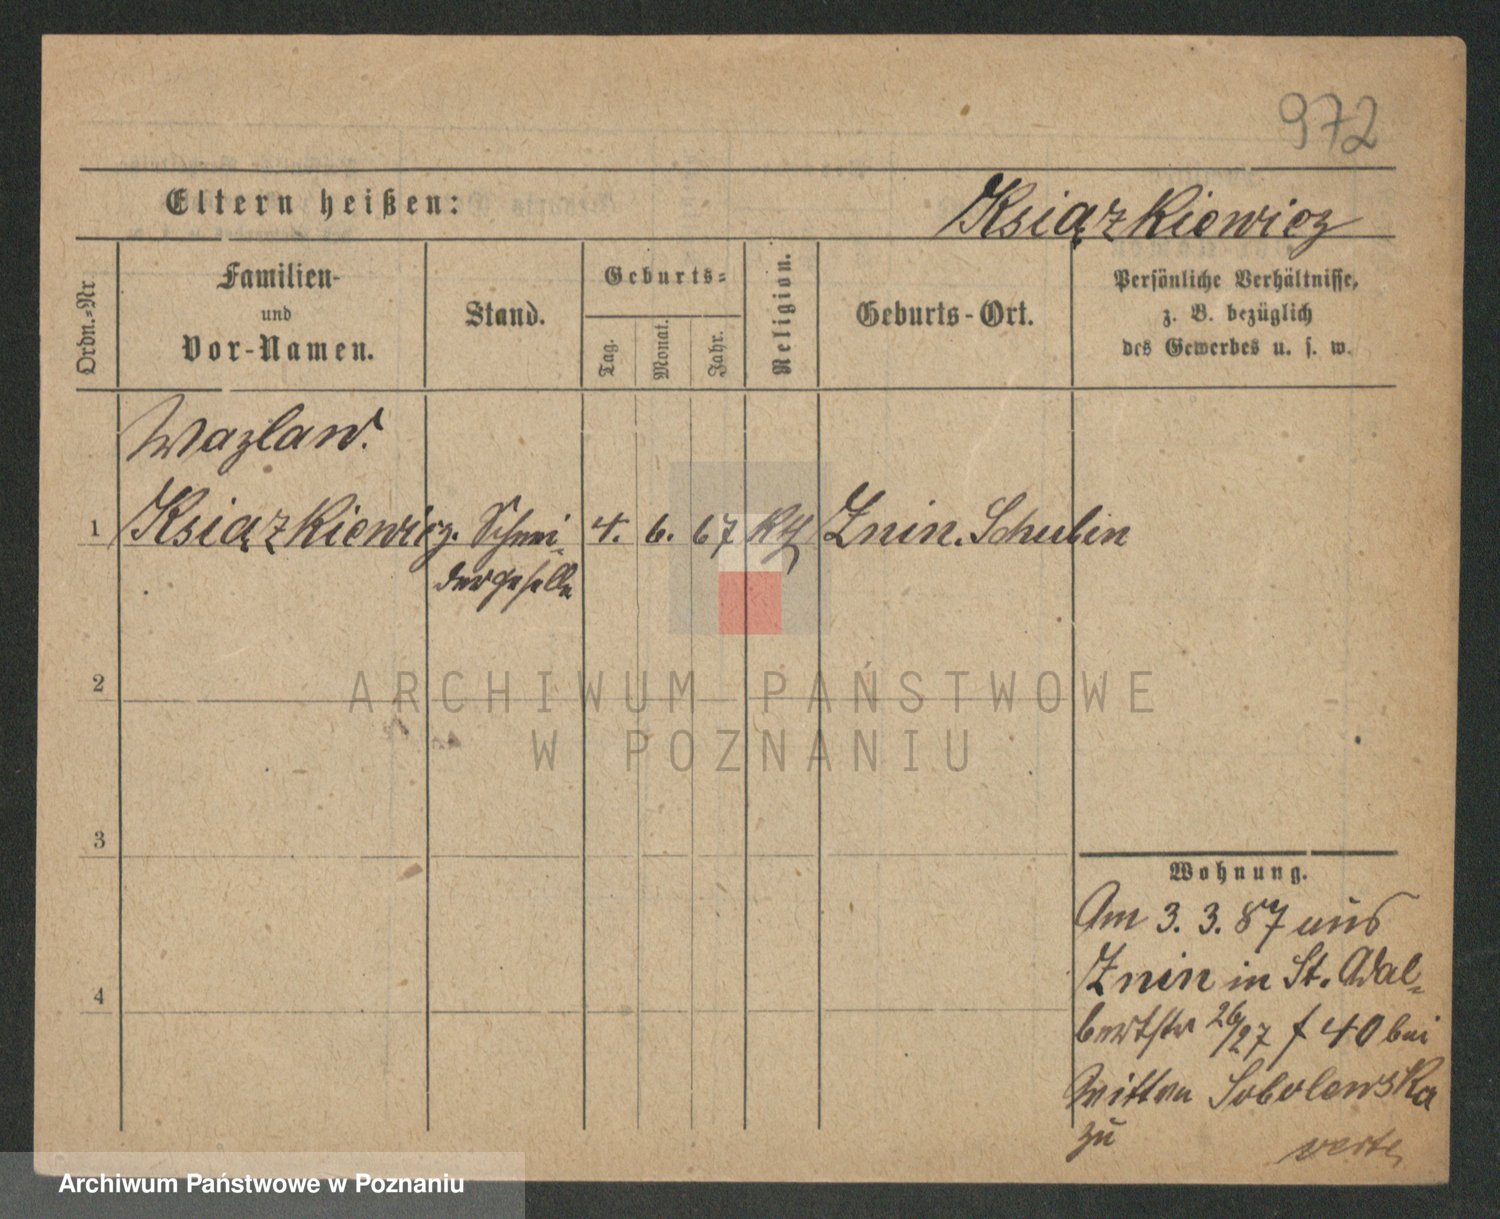 972
Eltern heißen:
Książkiewicz
Ordn.-Nr
Familien-
und
Vor-Namen.
Stand.
Geburts-
Tag.
Monat.
Jahr.
Religion.
Geburts-Ort.
Persönliche Verhältnisse,
z. B. bezüglich
des Gewerbes u. s. w.
Wazlaw.
1 Książkiewicz. Schnei- 4. 6. 67 Kth Znin. Schubin
dergeselle
2
ARCHIWUM PAŃSTWOWE
W POZNANIU
3
Wohnung.
Am 3. 3. 87 aus
Znin in St. Adal-
4
bertstr 26/27 f 40 bei
Wittwe Sobolewska
zu
verte
Archiwum Państwowe w Poznaniu